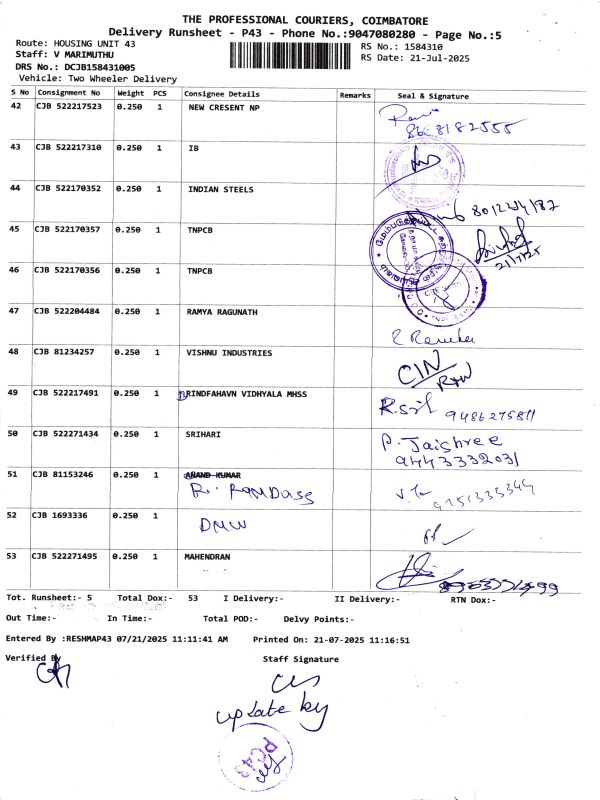 THE PROFESSIONAL COURIERS, COIMBATORE
Delivery Runsheet - P43 - Phone No.:9047080280 - Page No.:5
Route: HOUSING UNIT 43
RS No.: 1584310
Staff: V MARIMUTHU
RS Date: 21-Jul-2025
DRS No.: DCJB158431005
Vehicle: Two Wheeler Delivery
S No Consignment No Weight PCS Consignee Details Remarks Seal & Signature
42 CJB 522217523 0.250 1 NEW CRESENT NP
43 CJB 522217310 0.250 1 IB
44 CJB 522170352 0.250 1 INDIAN STEELS
45 CJB 522170357 0.250 1 TNPCB
21/7/25
46 CJB 522170356 0.250 1 TNPCB
47 CJB 522204484 0.250 1 RAMYA RAGUNATH
48 CJB 81234257 0.250 1 VISHNU INDUSTRIES
49 CJB 522217491 0.250 1 RINDFAHAVN VIDHYALA MHSS
50 CJB 522271434 0.250 1 SRIHARI P. Jaishree
94433332031
51 CJB 81153246 0.250 1 ANAND KUMAR
RAMDASS
52 CJB 1693336 0.250 1
DMW
53 CJB 522271495 0.250 1 MAHENDRAN
Tot. Runsheet:- 5 Total Dox:- 53 I Delivery:- II Delivery:- RTN Dox:-
Out Time:- In Time:- Total POD:- Delvy Points:-
Entered By :RESHMAP43 07/21/2025 11:11:41 AM Printed On: 21-07-2025 11:16:51
Verified By Staff Signature
update by
PC43